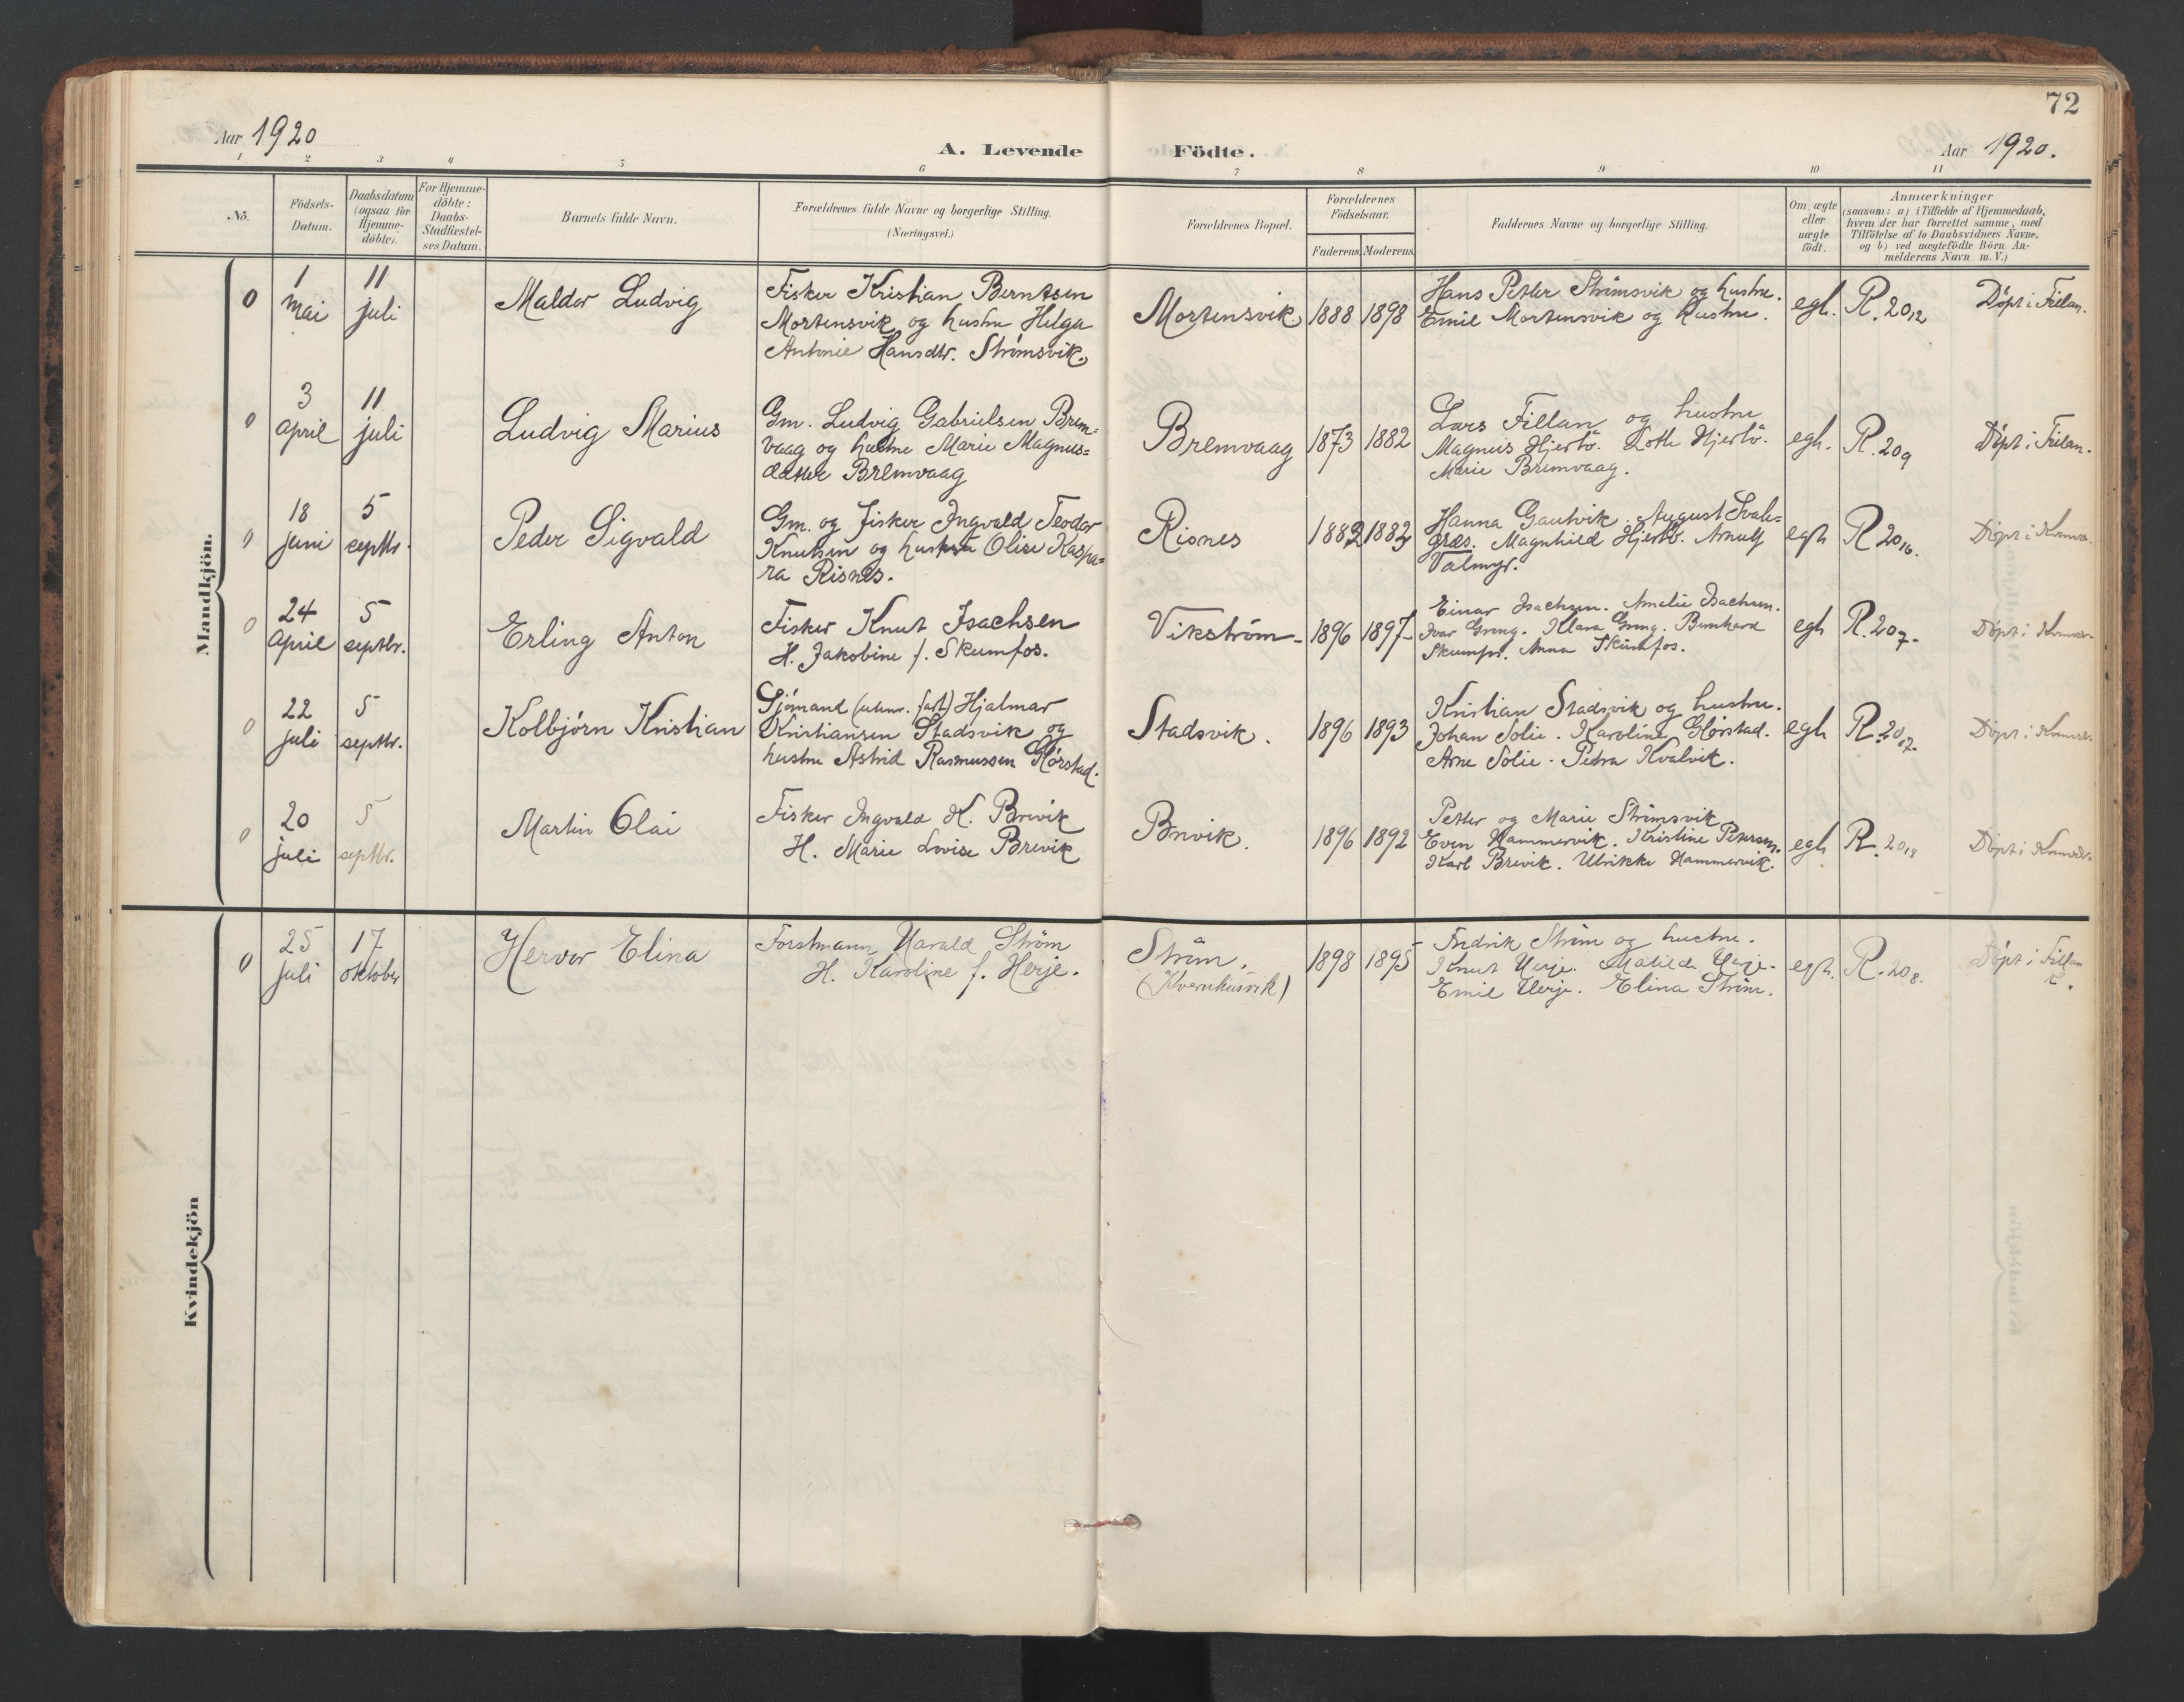 72
Aar 1920
A. Levende Födte.
Aar 1920.
1 2 3 4 5 6 7 8 9 10 11
No.
Födsels-
Datum.
Daabsdatum
(ogsaa for
Hjemme-
döbte).
For Hjemme-
döbte:
Daabs-
Stadfæstel-
ses Datum.
Barnets fulde Navn.
Forældrenes fulde Navne og borgerlige Stilling.
(Næringsvei.)
Forældrenes Bopæl.
Forældrenes
Födselsaar.
Faderens. Moderens.
Faddernes Navne og borgerlige Stilling.
Om ægte
eller
uægte
född.
Anmærkninger
(saasom: a) i Tilfælde af Hjemmedaab,
hvem der har forrettet samme, med
Tilföielse af to Daabsvidners Navne.
og b) ved uægtefödte Börn An-
melderens Navn m. V.)
Mandkjön.
0
1
mai
11
juli
Maldor Ludvig
Fisker Kristian Berntsen
Mortensvik og hustru Helga
Antonie Hansdtr. Strømsvik.
Mortensvik.
1888
1898
Hans Petter Strømsvik og hustru.
Emil Mortensvik og hustru.
egt.
R. 20 12
Döpt i Fillan.
0
3
april
11
juli
Ludvig Marius
Gm. Ludvig Gabrielsen Brem=
vaag og hustru Marie Magnus=
datter Bremvaag
Bremvaag
1873
1882
Lars Fillan og hustru
Magnus Hjertö. Lotte Hjertö.
Marie Bremvaag.
egt.
R. 20 9
Döpt i Fillan.
0
18
juni
5
septbr.
Peder Sigvald
Gm. og fisker Ingvald Teodor
Knutsen og hustru Olise Kaspa=
ra Risnes.
Risnes
1882
188
Hanna Gautvik. August Svale=
græs. Magnhild Hjertö. Arnulf
Valmyr.
egt
R 20 16.
Döpt i
0
24
april
5
septbr.
Erling Anton
Fisker Knut Isachsen
H. Jakobine f. Skumfos.
Vikström
1896
1897
Einar Isachsen. Amalie Isachsen.
Ivar Klara Bernhard
Skumfos. Anna Skumfos.
egt
R. 20 7.
Döpt i
0
22
juli
5
septbr.
Kolbjørn Kristian
Sjømand (utenr. fart) Hjalmar
Kristiansen Stadsvik og
hustru Astrid Rasmussen Glørstad.
Stadsvik.
1896
1893
Kristian Stadsvik og hustru.
Johan Solie. Karoline Glørstad.
Arne Solie. Petra Kvalvik.
egt
R. 20 17.
Döpt i
0
20
juli
5
septbr.
Martin Olai
Fisker Ingvald K. Brevik
H. Marie Lovise Brevik
Brevik.
1896
1892
Petter og Marie Strømsvik
Even Hammervik. Kristine Petersen.
Karl Brevik. Ulrikke Hammervik.
egt
R. 20 18
Döpt i
Kvindekjön
0
25
juli
17
oktober
Hervor Elina
Forstmann Harald Ström
H. Karoline f. Herje.
Ström.
(Kvernhusvik)
1898
1895
Fredrik Ström og hustru.
Knut Herje. Matilde Herje.
Emil Herje. Elina Ström.
egt.
R. 20 8.
Döpt i Fillan